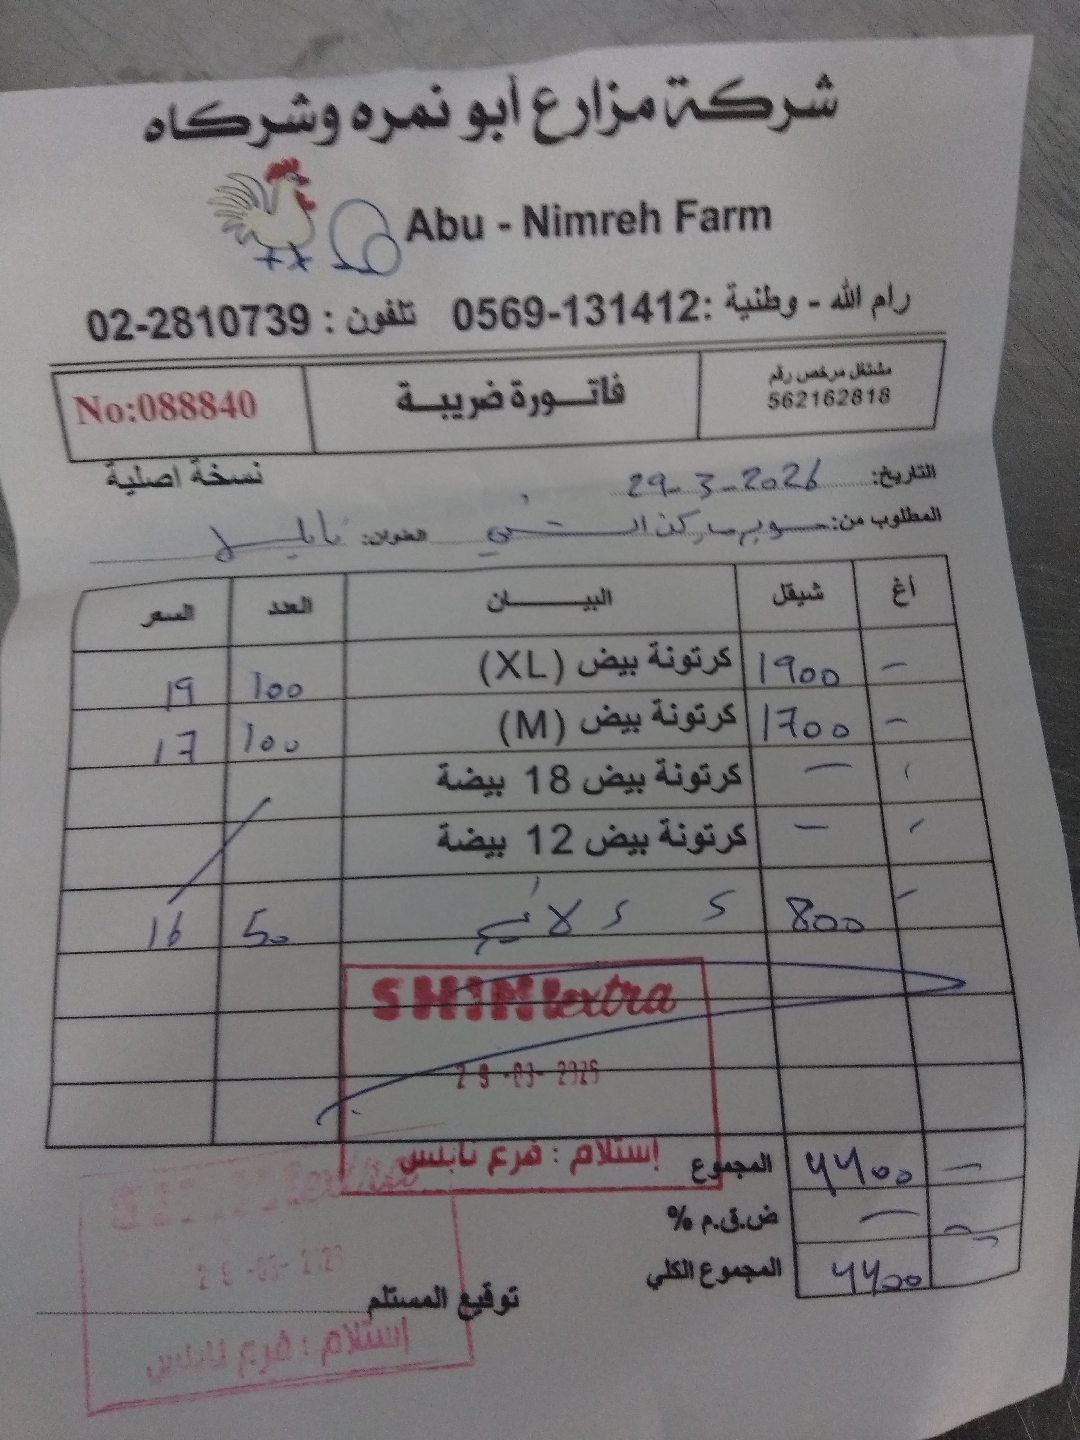 شركة مزارع أبو نمره وشركاه
Abu - Nimreh Farm
رام الله - وطنية :0569-131412 تلفون : 02-2810739
مشتغل مرخص رقم
562162818
فاتورة ضريبة
No:088840
نسخة اصلية
التاريخ: 29-3-2026
المطلوب من: سوبر ماركت الشني العنوان: نابلس
أغ شيقل البيــــان العدد السعر
- 1900 كرتونة بيض (XL) 100 19
- 1700 كرتونة بيض (M) 100 17
- كرتونة بيض 18 بيضة
- كرتونة بيض 12 بيضة
800 50 16
SHINI extra
29-03-2026
إستلام : فرع نابلس
المجموع 4400 -
ض.ق.م %
المجموع الكلي 4400
توقيع المستلم
إستلام : فرع نابلس